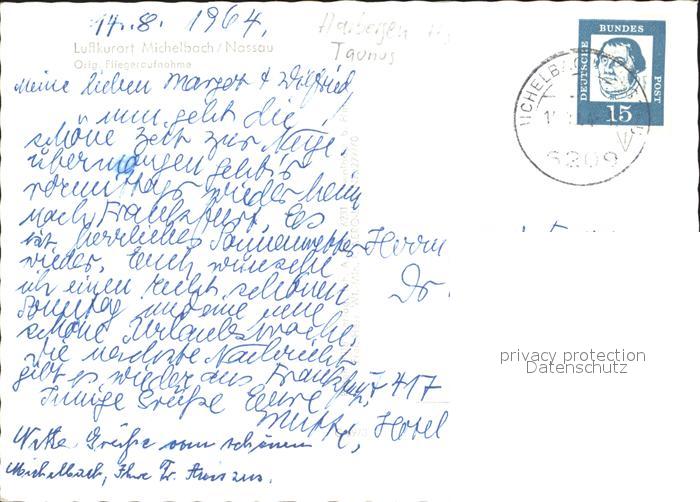 14.8.1964.
Luftkurort Michelbach/Nassau
Orig. Fliegeraufnahme
Taunus
Meine lieben Margot & Wilfried,
nun geht die
schöne Zeit zur Neige,
übermorgen geht's
vormittags wieder heim
nach Frankfurt. Es
ist herrliches Sonnenwetter
wieder. Euch wünsche
ich einen recht schönen
Sonntag und eine
schöne Urlaubswoche.
Die nächste Nachricht
gibt es wieder aus Frankfurt,
Innige Grüße Eure
Mutti,
Nette Grüße vom schönen
Michelbach, Ihre Fr.
Herrn
Dr.
417
Hotel
DEUTSCHE
BUNDES
POST
15
MICHELBACH
6209
privacy protection
Datenschutz